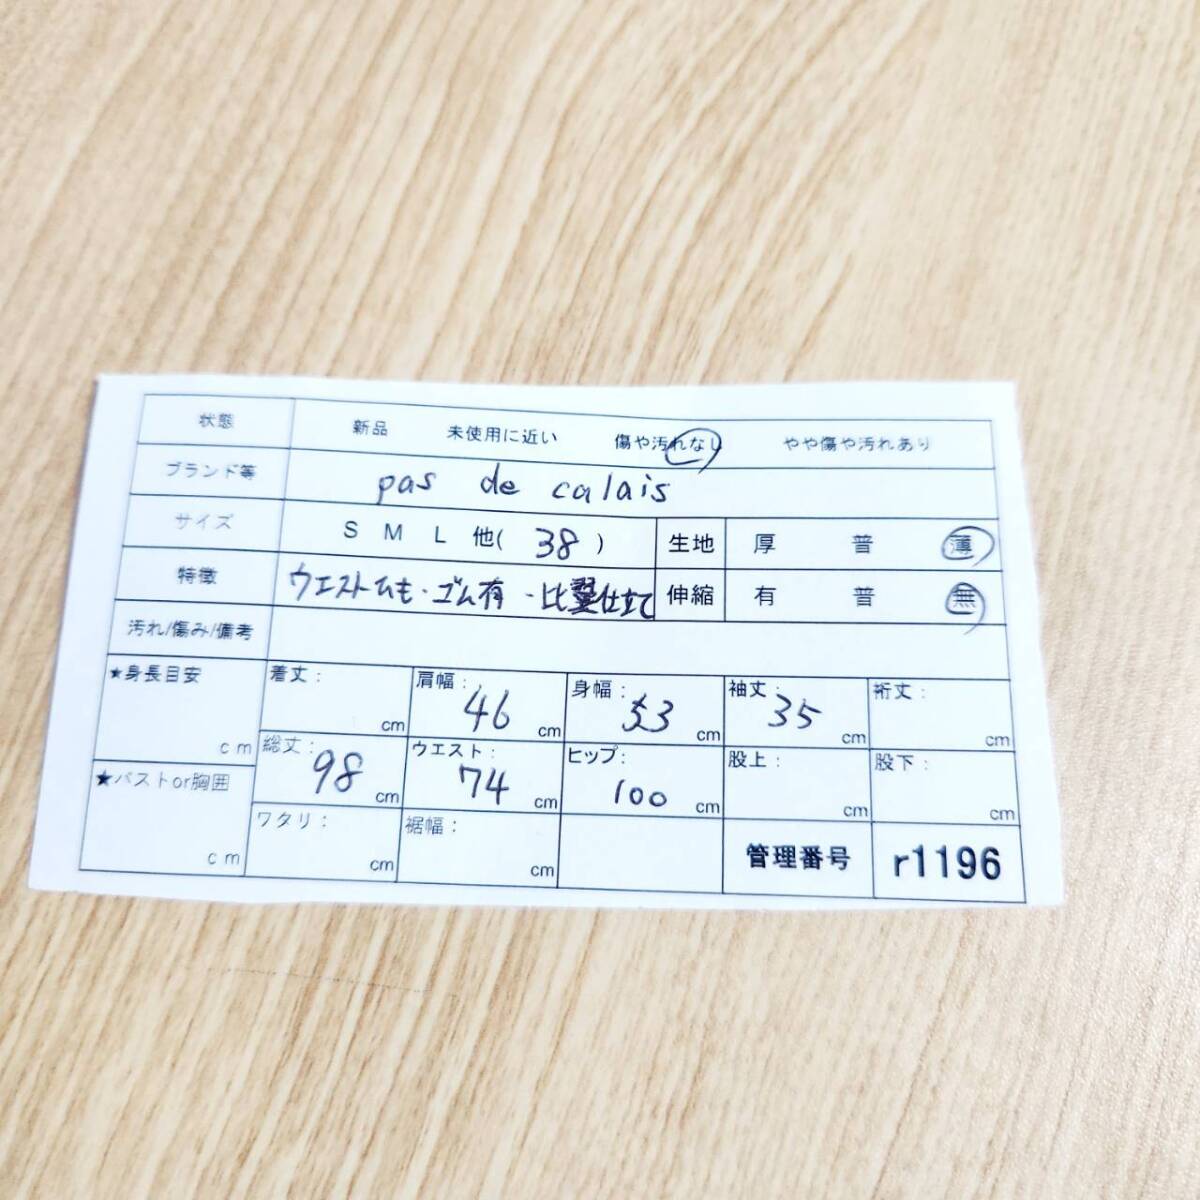 状態 新品 未使用に近い 傷や汚れなし やや傷や汚れあり
ブランド等 pas de calais
サイズ S M L 他( 38 ) 生地 厚 普 薄
特徴 ウエストひも・ゴム有・比翼仕立て 伸縮 有 普 無
汚れ/傷み/備考
★身長目安 cm 着丈: cm 肩幅: 46 cm 身幅: 53 cm 袖丈: 35 cm 裄丈: cm
★バストor胸囲 cm 総丈: 98 cm ウエスト: 74 cm ヒップ: 100 cm 股上: cm 股下: cm
ワタリ: cm 裾幅: cm 管理番号 r1196